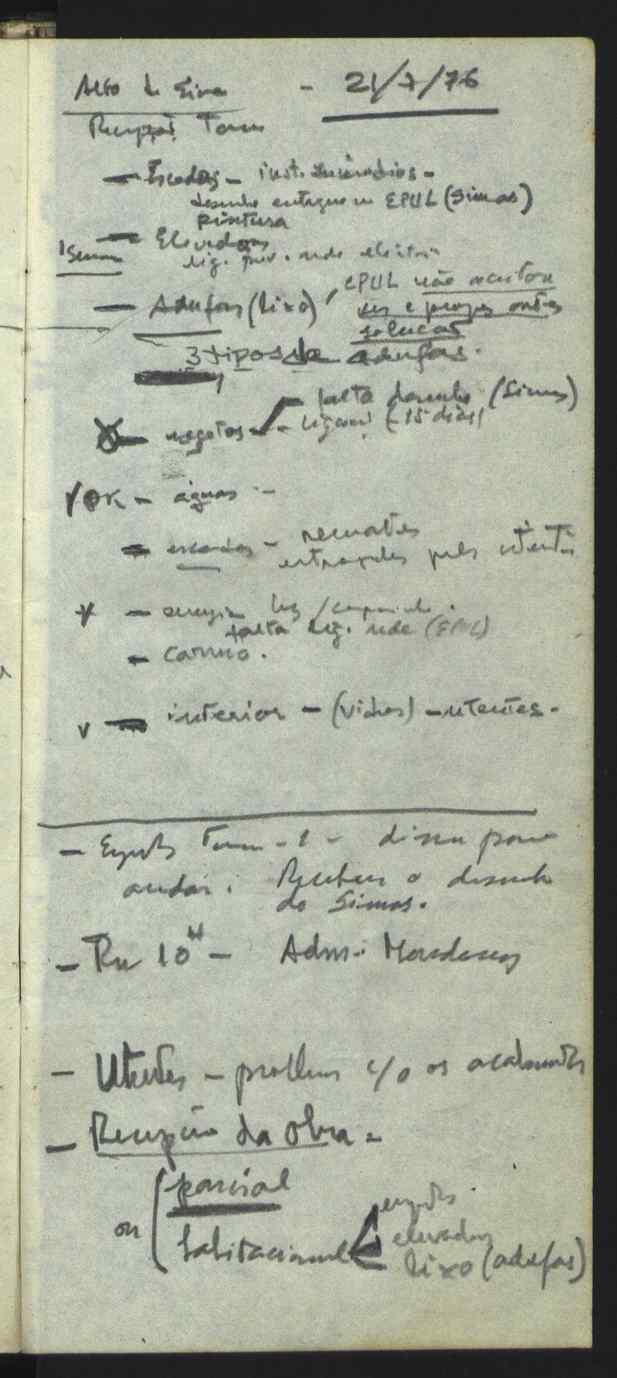 Alto de - 21/7/76
Recepção Torres
- Escadas - inst. incêndios -
desenho entregue EPUL (Simas)
pintura
- Elevadores
1 Semana
lig. prov. rede eléctrica
- Adufas (lixo), EPUL não aceitou
solução
3 tipos de adufas.
- esgotos - falta desenho (Simas)
- (-15 dias)
OK - águas -
- escadas - remates
pelos utentes
- energia luz /
falta lig. rede (EPUL)
- carvão.
v - interior - (vidros) - utentes -
- Esgotos Torre - 1 - disse para
andar. Recebeu o desenho
do Simas.
- 10H - Adm. Moradores
- Utentes - problema c/o os acabamentos
- Recepção da Obra -
ou ( parcial
habitacional < esgotos
elevadores
lixo (adufas)